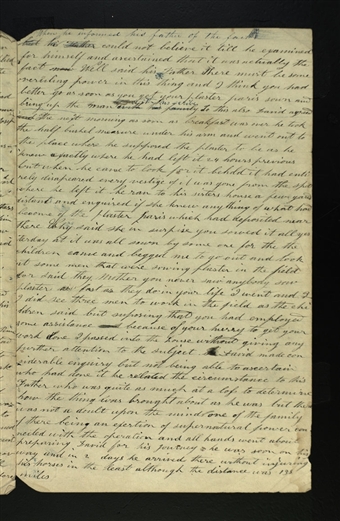 he informed his father of the
that he could not believe it till he examined
for himself and ascertained that it was actually the
fact Well said his Father there must be some
overruling power in this thing and I think you had
better go as soon as you get your plaster paris sown and
bring up the man and his family to this also David agreed
the next morning as soon as breakfast was over he took
the half bushel measure under his arm and went out to
the place where he supposed the plaster to be as he
knew exactly where he had left it 24 hours previous
but when he came to look for it behold it had enti
rely disappeared every vestige of it was gone from the spot
where he left it he ran to his sisters house a few yards
distant and enquired if she knew any thing of what had
become of the plaster paris which had deposited near
there Why said she in surprize you sowed it all yes
terday it was all sown by some one for the
children came and begged me to go out and look
at some men that were sowing plaster in the field
for said they Mother you never saw anybody sow
plaster so fast as they do in your life I went and
I did see three men to work in the field as the chi
ldren said but suposing that you had employed
some assistance because of your hurry to get your
work done I passed into the house without giving any
further attention to the subject David made con
siderable enquiry but not being able to ascertain
who had done it he related the circumstance to his
Father who was quite as much at a loss to determine
how the thing was brought about as he was but there
was not a doubt upon the minds of one of the family
of there being an exertion of supernatural power
with the operation and all hands went about
preparing David for his journey & he was soon on his
way and in 2 days he arrived there without injuring
his horses in the least although the distance was 135
miles